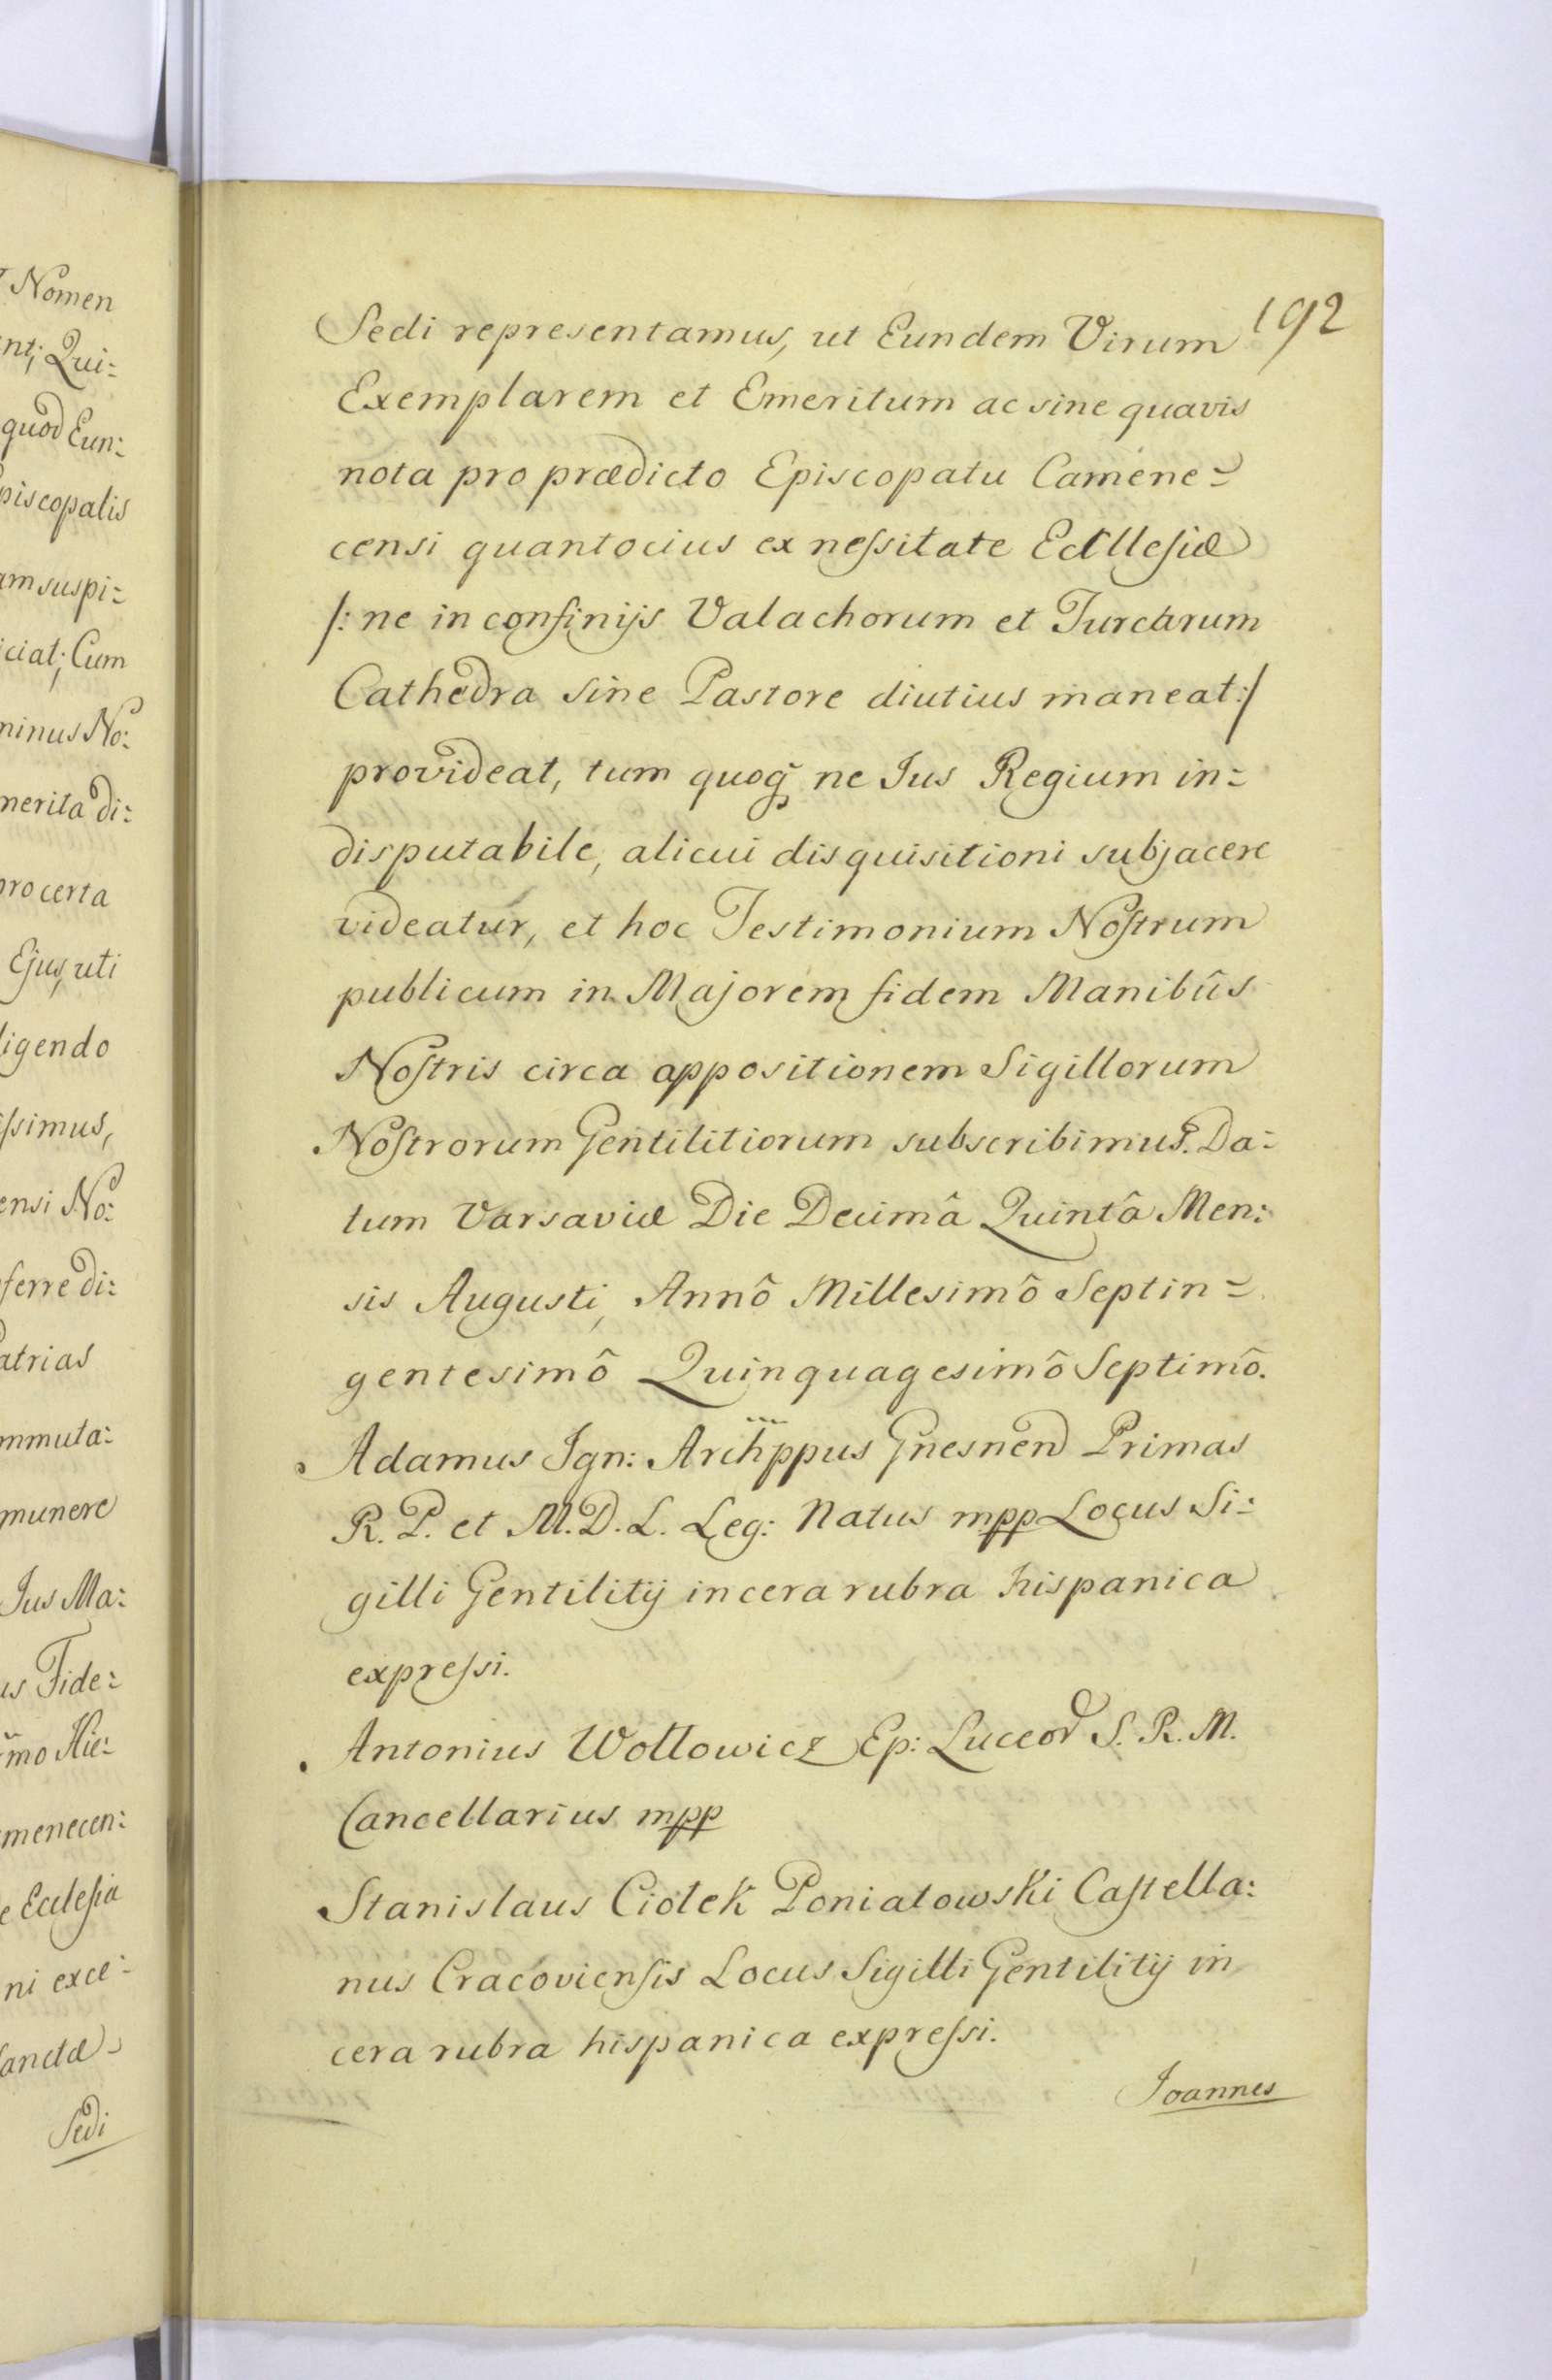 Nomen
nt; Qui:
quod Eun:
piscopalis
am suspi:
iciat; Cum
minus No:
merita di:
pro certa
Ejus, uti
ligendo
ſsimus,
ensi No:
ferre di:
atrias
mmuta:
munere
Jus Ma:
us Fide:
m̃o Hie:
menecen:
e Eccleſia
ni exce:
Sanctæ
Sedi
192
Sedi representamus, ut Eundem Virum
Exemplarem et Emeritum ac sine quavis
nota pro prædicto Episcopatu Camene=
censi quantocius ex neſsitate Ecclleſiæ
/: ne in confinijs Valachorum et Turcarum
Cathedra sine Pastore diutius maneat :/
provideat, tum quoq̃ ne Jus Regium in=
disputabile, alicui disquisitioni subjacere
videatur, et hoc Testimonium Noſtrum
publicum in Majorem fidem Manibûs
Noſtris circa appositionem Sigillorum
Noſtrorum Gentilitiorum subscribimus. Da:
tum Varsaviæ Die Decimâ Quintâ Men:
sis Augusti, Annô Millesimô Septin=
gentesimô Quinquagesimô Septimô.
Adamus Ign: Archppus Gnesnen Primas
R. P. et M. D. L. Leg: Natus mpp Locus Si:
gilli Gentilitij in cera rubra hispanica
expreſsi.
Antonius Wołłowicz Ep: Luceor S. R. M.
Cancellarius mpp
Stanislaus Ciołek Poniatowski Caſtella:
nus Cracovienſis Locus Sigilli Gentilitij in
cera rubra hispanica expreſsi.
Joannes